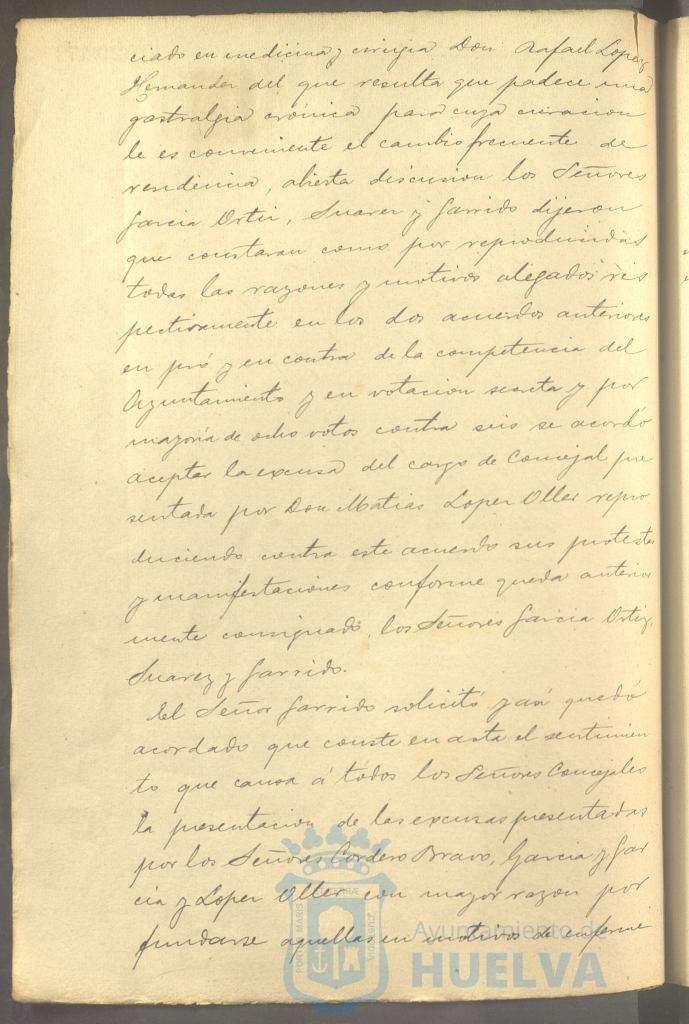 ciado en medicina y cirugia Don Rafael Lopez
Hernandez del que resulta que padece una
gastralgia crónica para cuya curacion
le es conveniente el cambio frecuente de
residencia, abierta discusion los Señores
Garcia Ortiz, Suarez y Garrido dijeron
que constaran como por reproducidas
todas las razones y motivos alegados res
pectivamente en los dos acuerdos anteriores
en pró y en contra de la competencia del
Ayuntamiento y en votacion secreta y por
mayoria de ocho votos contra seis se acordó
aceptar la excusa del cargo de Concejal pre
sentada por Don Matias Lopez Oller repro
duciendo contra este acuerdo sus protestas
y manifestaciones conforme queda anterior
mente consignado, los Señores Garcia Ortiz,
Suarez y Garrido.
El Señor Garrido solicitó y asi quedó
acordado que conste en acta el sentimien
to que causa á todos los Señores Concejales
la presentacion de las excusas presentadas
por los Señores Cordero Bravo, Garcia y Gar
cia y Lopez Oller con mayor razon por
fundarse aquellas en motivos de enferme
Ayuntamiento de
HUELVA